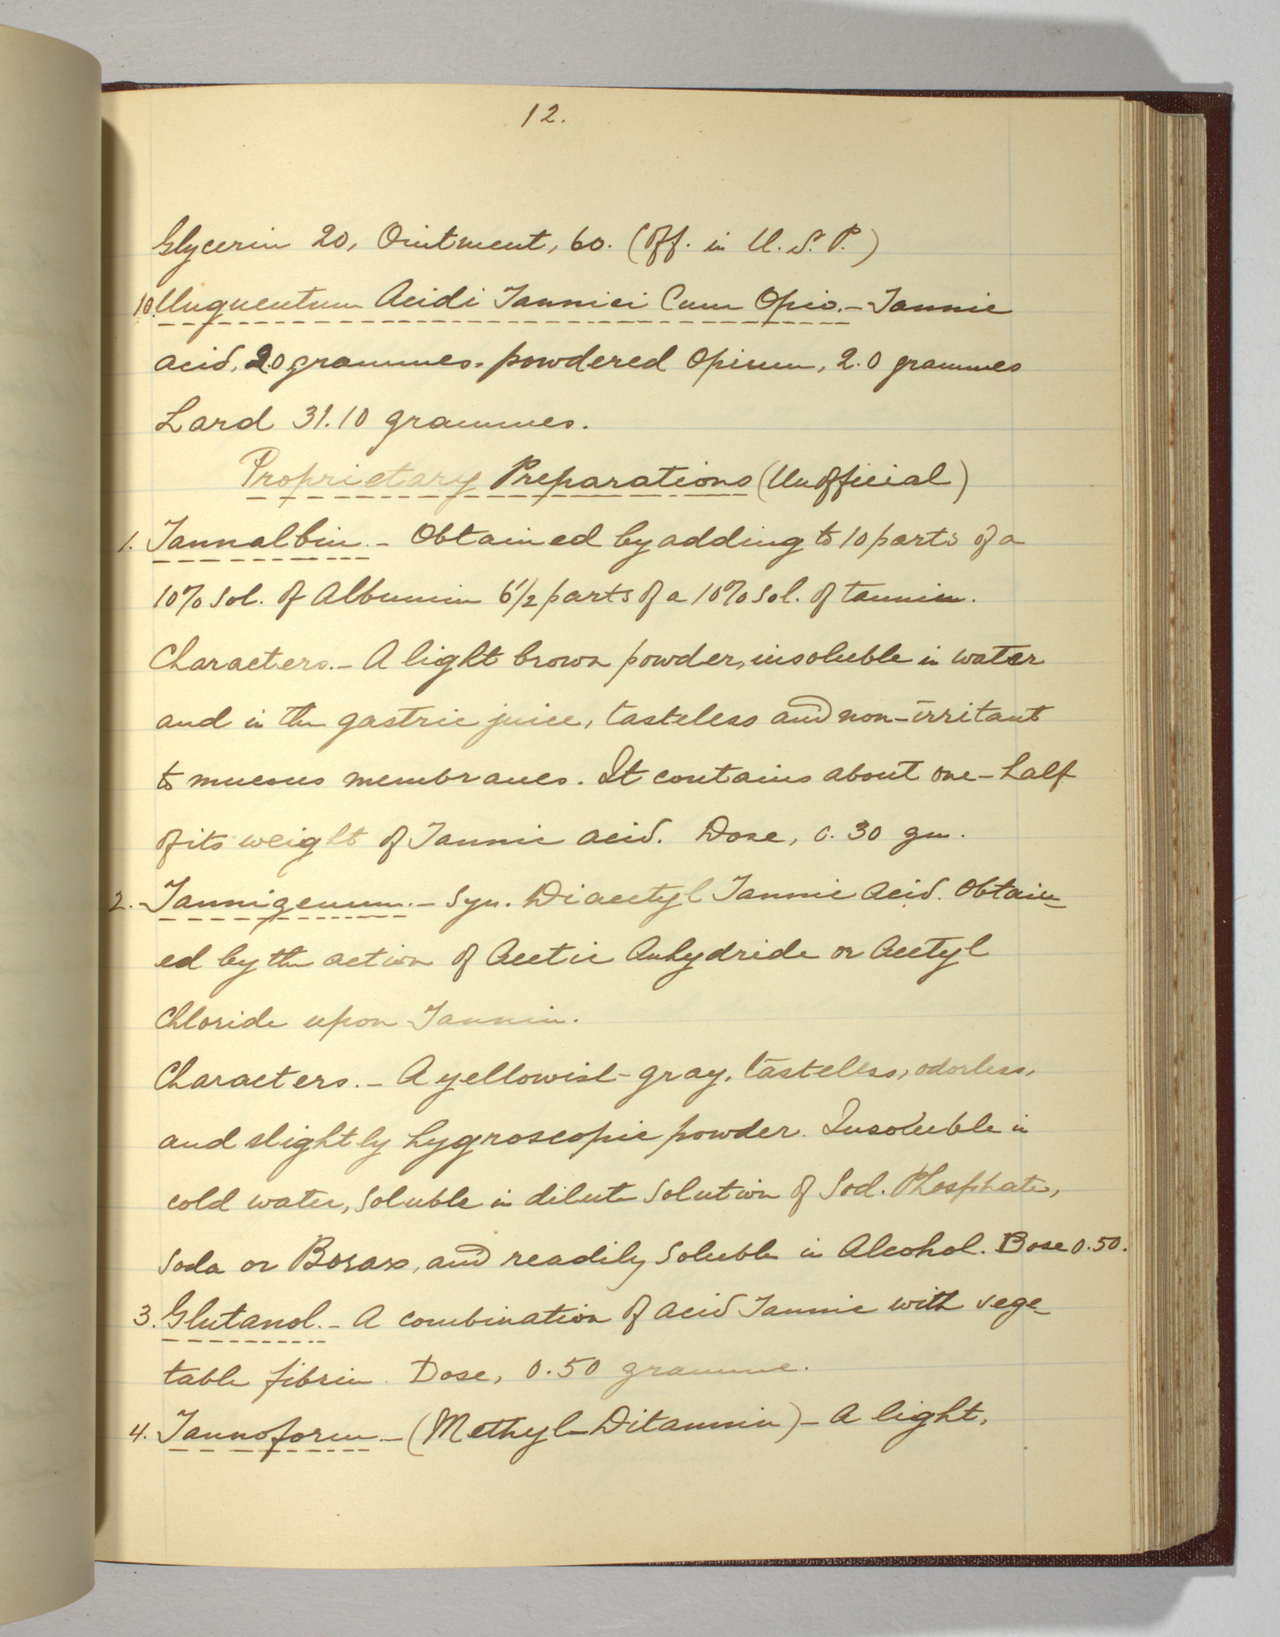 12.
Glycerin 20, Ointment, 60. (Off. in U.S.P.)
10. Unguentum Acidi Tannici Cum Opio. - Tannic
acid, 2.0 grammes. powdered Opium, 2.0 grammes
Lard 31.10 grammes.
Proprietary Preparations (Unofficial)
1. Tannalbin. - Obtained by adding to 10 parts of a
10% sol. of Albumin 6½ parts of a 10% sol. of tannin.
Characters. - A light brown powder, insoluble in water
and in the gastric juice, tasteless and non-irritant
to mucous membranes. It contains about one-half
of its weight of Tannic acid. Dose, 0.30 gm.
2. Tannigenum. - Syn. Diacetyl Tannic Acid. Obtain-
ed by the action of Acetic Anhydride or Acetyl
Chloride upon Tannin.
Characters. - A yellowish-gray, tasteless, odorless,
and slightly hygroscopic powder. Insoluble in
cold water, soluble in dilute solution of Sod. Phosphate,
Soda or Borax, and readily soluble in Alcohol. Dose 0.50.
3. Glutanol. - A combination of acid Tannic with vege-
table fibrin. Dose, 0.50 gramme.
4. Tannoform - (Methyl-Ditannin) - A light,